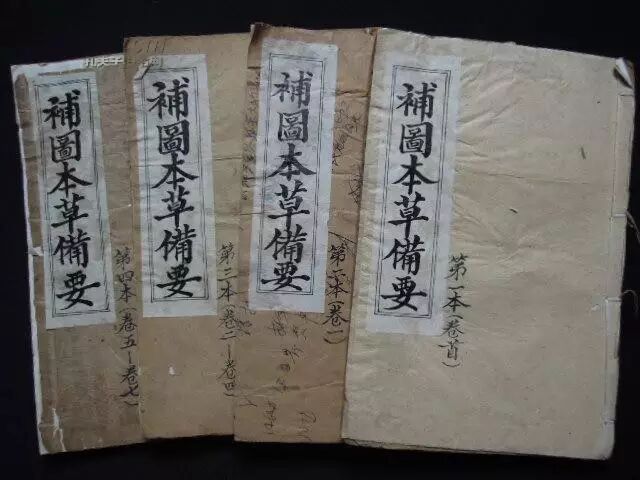 補圖本草備要
第一本(卷首)
補圖本草備要
第二本(卷一)
補圖本草備要
第三本(卷二-卷四)
補圖本草備要
第四本(卷五-卷七)